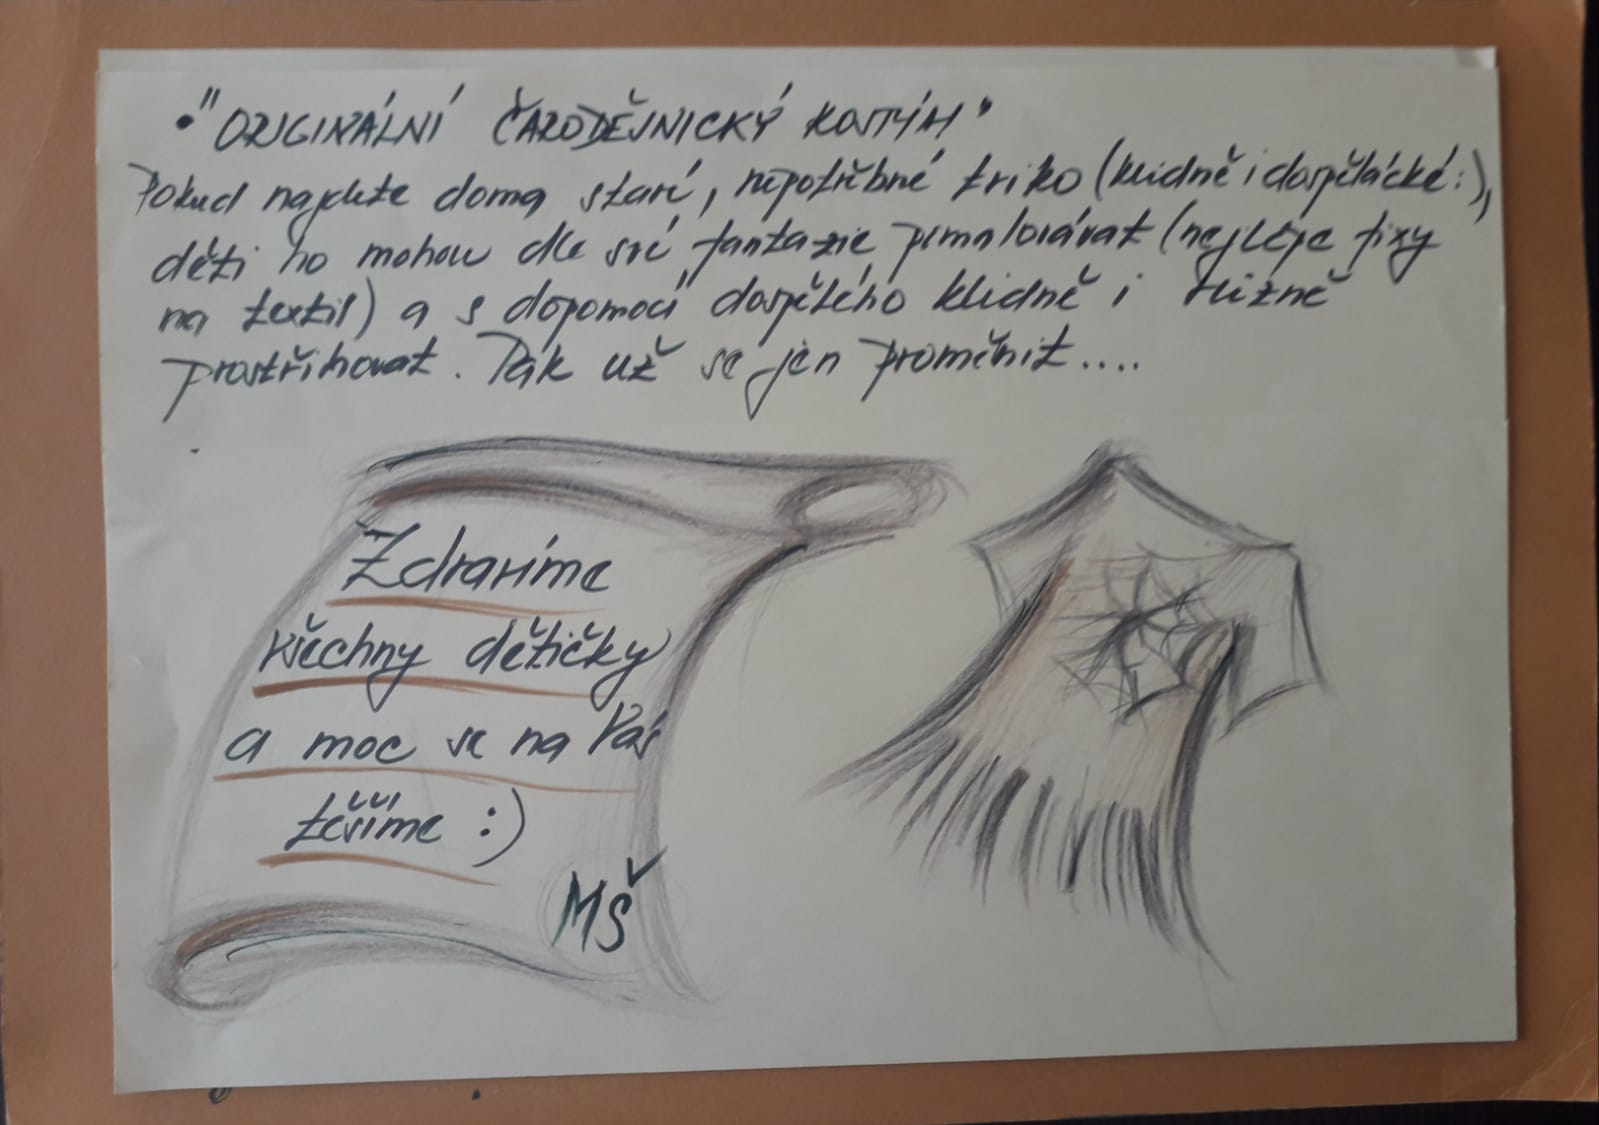 • "ORIGINÁLNÍ ČARODĚJNICKÝ KOSTÝM"
Pokud najdete doma staré, nepotřebné triko (klidně i dospělácké:),
děti ho mohou dle své fantazie pomalovávat (nejlépe fixy
na textil) a s dopomocí dospělého klidně i různě
prostřihovat. Pak už se jen proměnit....
Zdravíme
všechny dětičky
a moc se na Vás
těšíme :)
MŠ